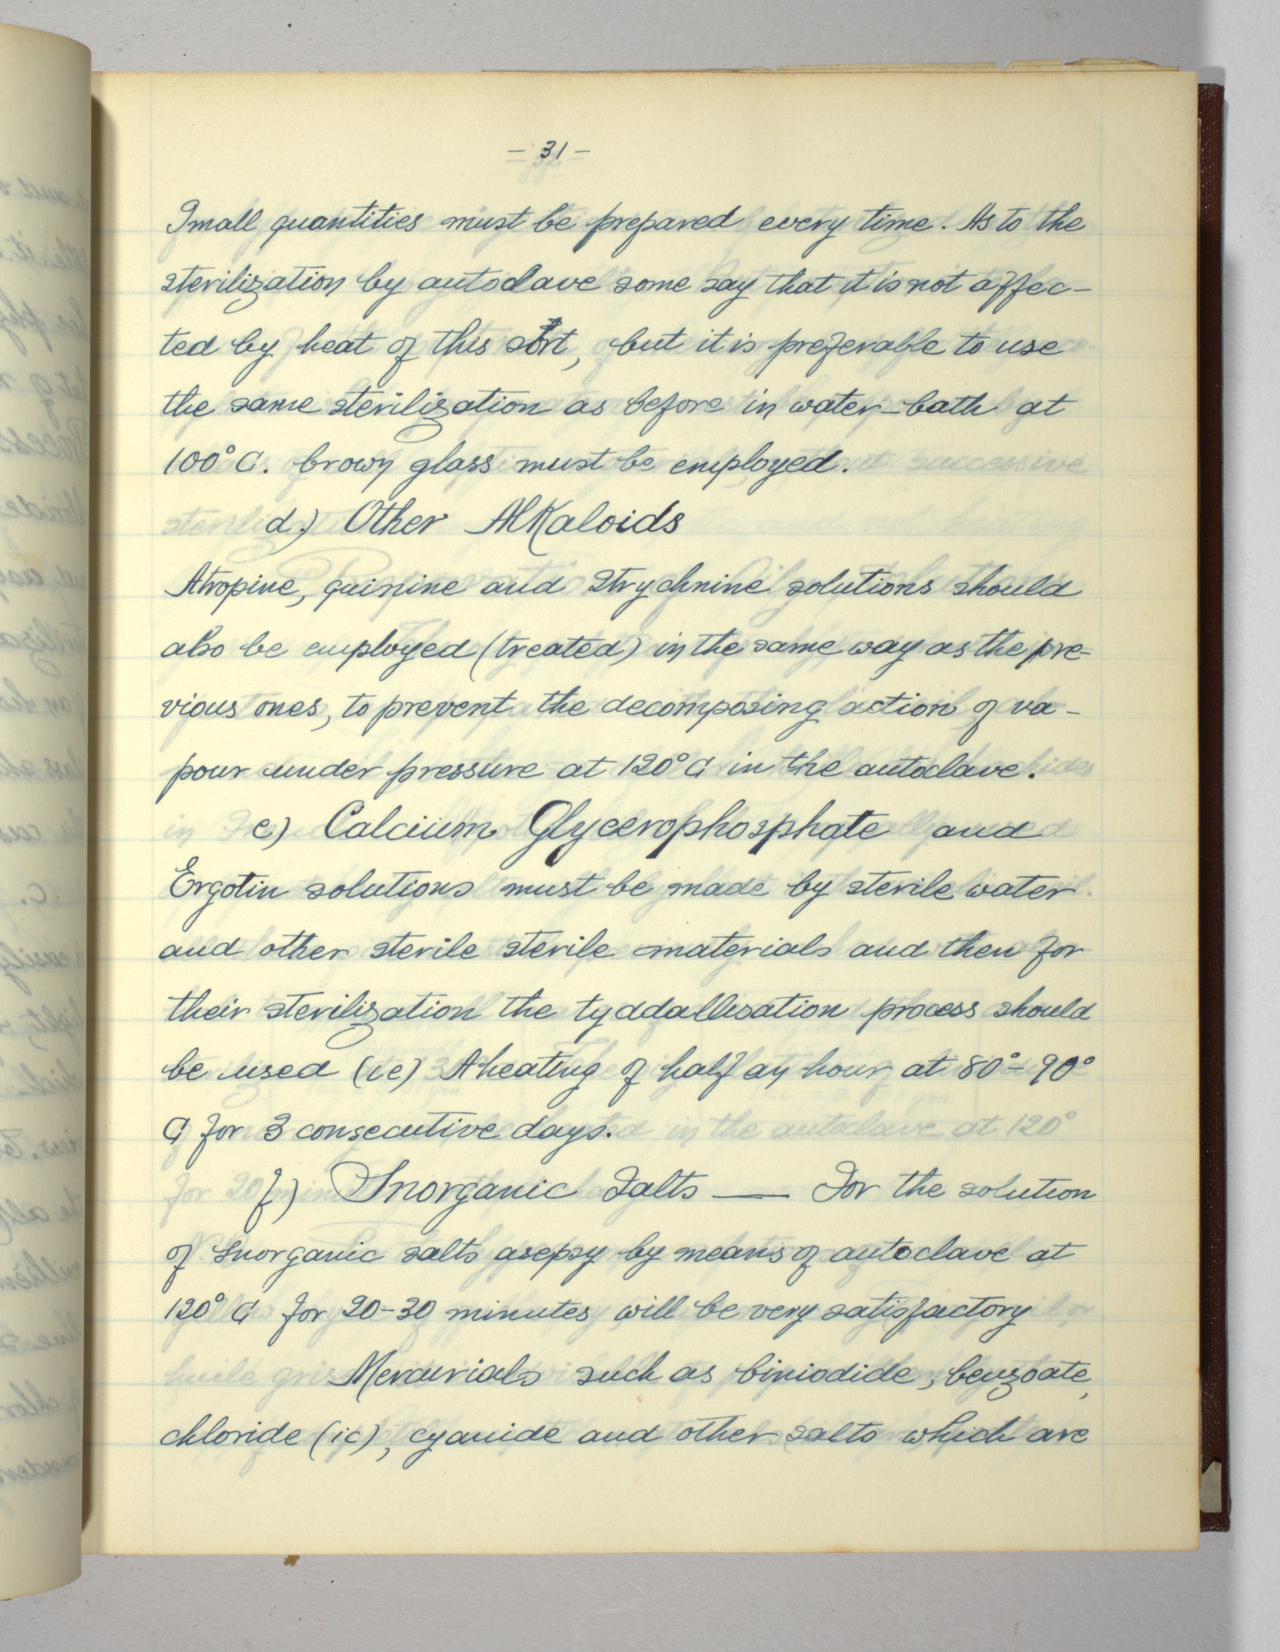 - 31 -
Small quantities must be prepared every time. As to the
sterilization by autoclave some say that it is not affec-
ted by heat of this sort, but it is preferable to use
the same sterilization as before in water-bath at
100° C. brown glass must be employed.
d.) Other Alkaloids
Atropine, quinine and strychnine solutions should
also be employed (treated) in the same way as the pre-
vious ones, to prevent the decomposing action of va-
pour under pressure at 120° C in the autoclave.
e) Calcium Glycerophosphate and
Ergotin solutions must be made by sterile water
and other sterile sterile materials and then for
their sterilization the tyddallisation process should
be used (ie) A heating of half an hour at 80°- 90°
C for 3 consecutive days.
f) Inorganic Salts — For the solution
of Inorganic salts asepsy by means of autoclave at
120° C for 20-30 minutes will be very satisfactory
Mercurials such as biniodide, benzoate,
chloride (ic), cyanide and other salts which are